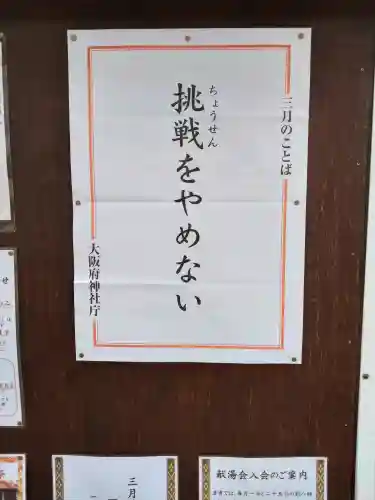 三月のことば
挑戦をやめない
ちょうせん
大阪府神社庁
三月
献湯会入会のご案内